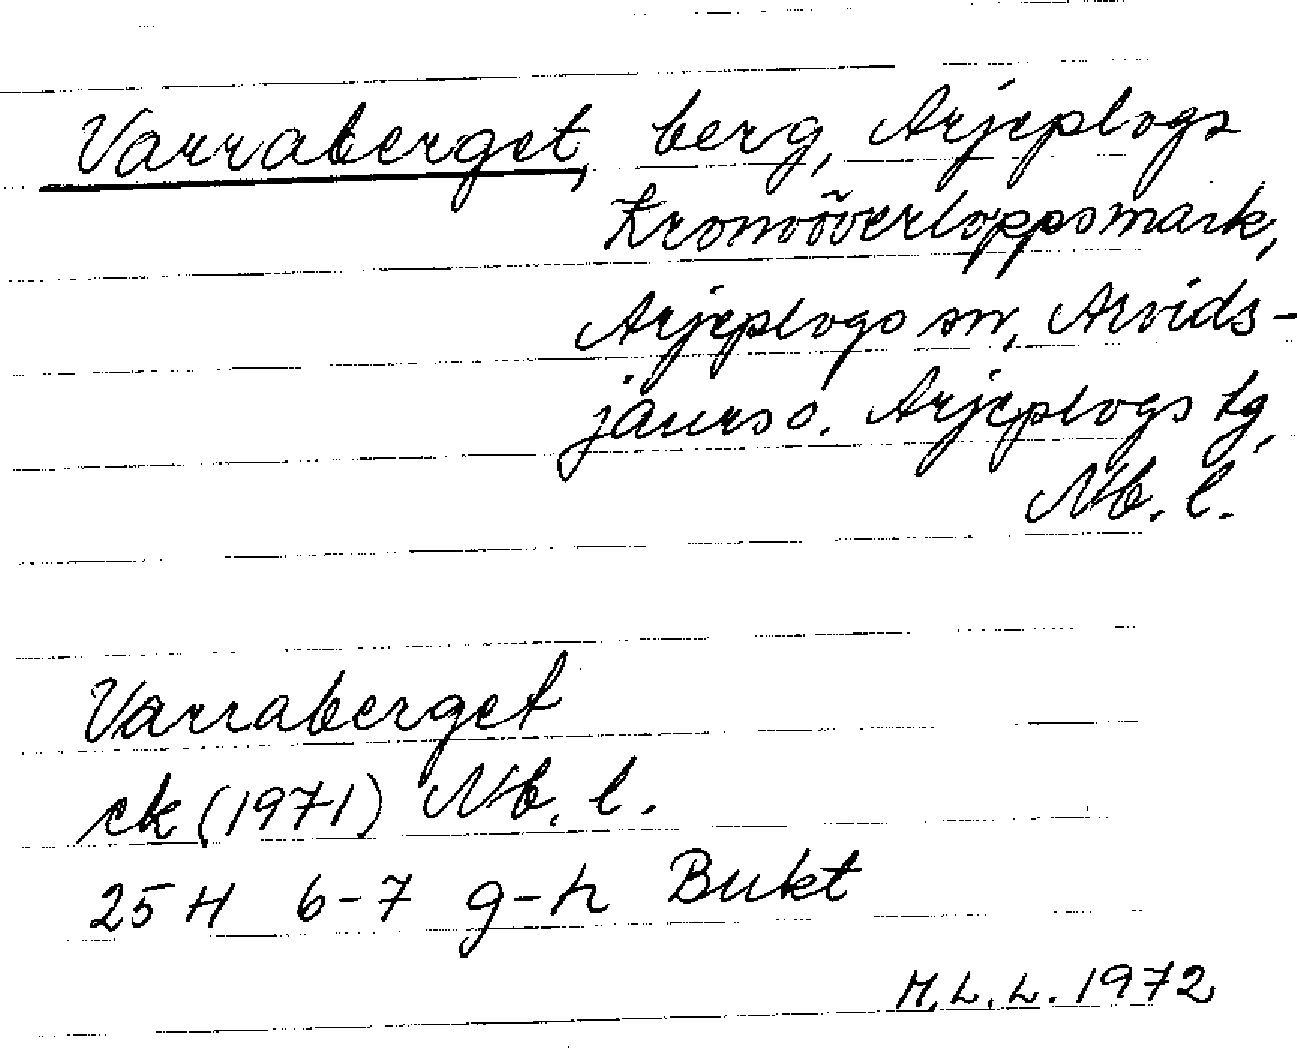 Varraberget, berg, Arjeplogs
Kronoöverloppsmark,
Arjeplogs sn, Arvids-
jaurs o. Arjeplogs tg,
Nb. l.
Varraberget
ek (1971) Nb. l.
25 H 6-7 g-h Bukt
M.L.L. 1972